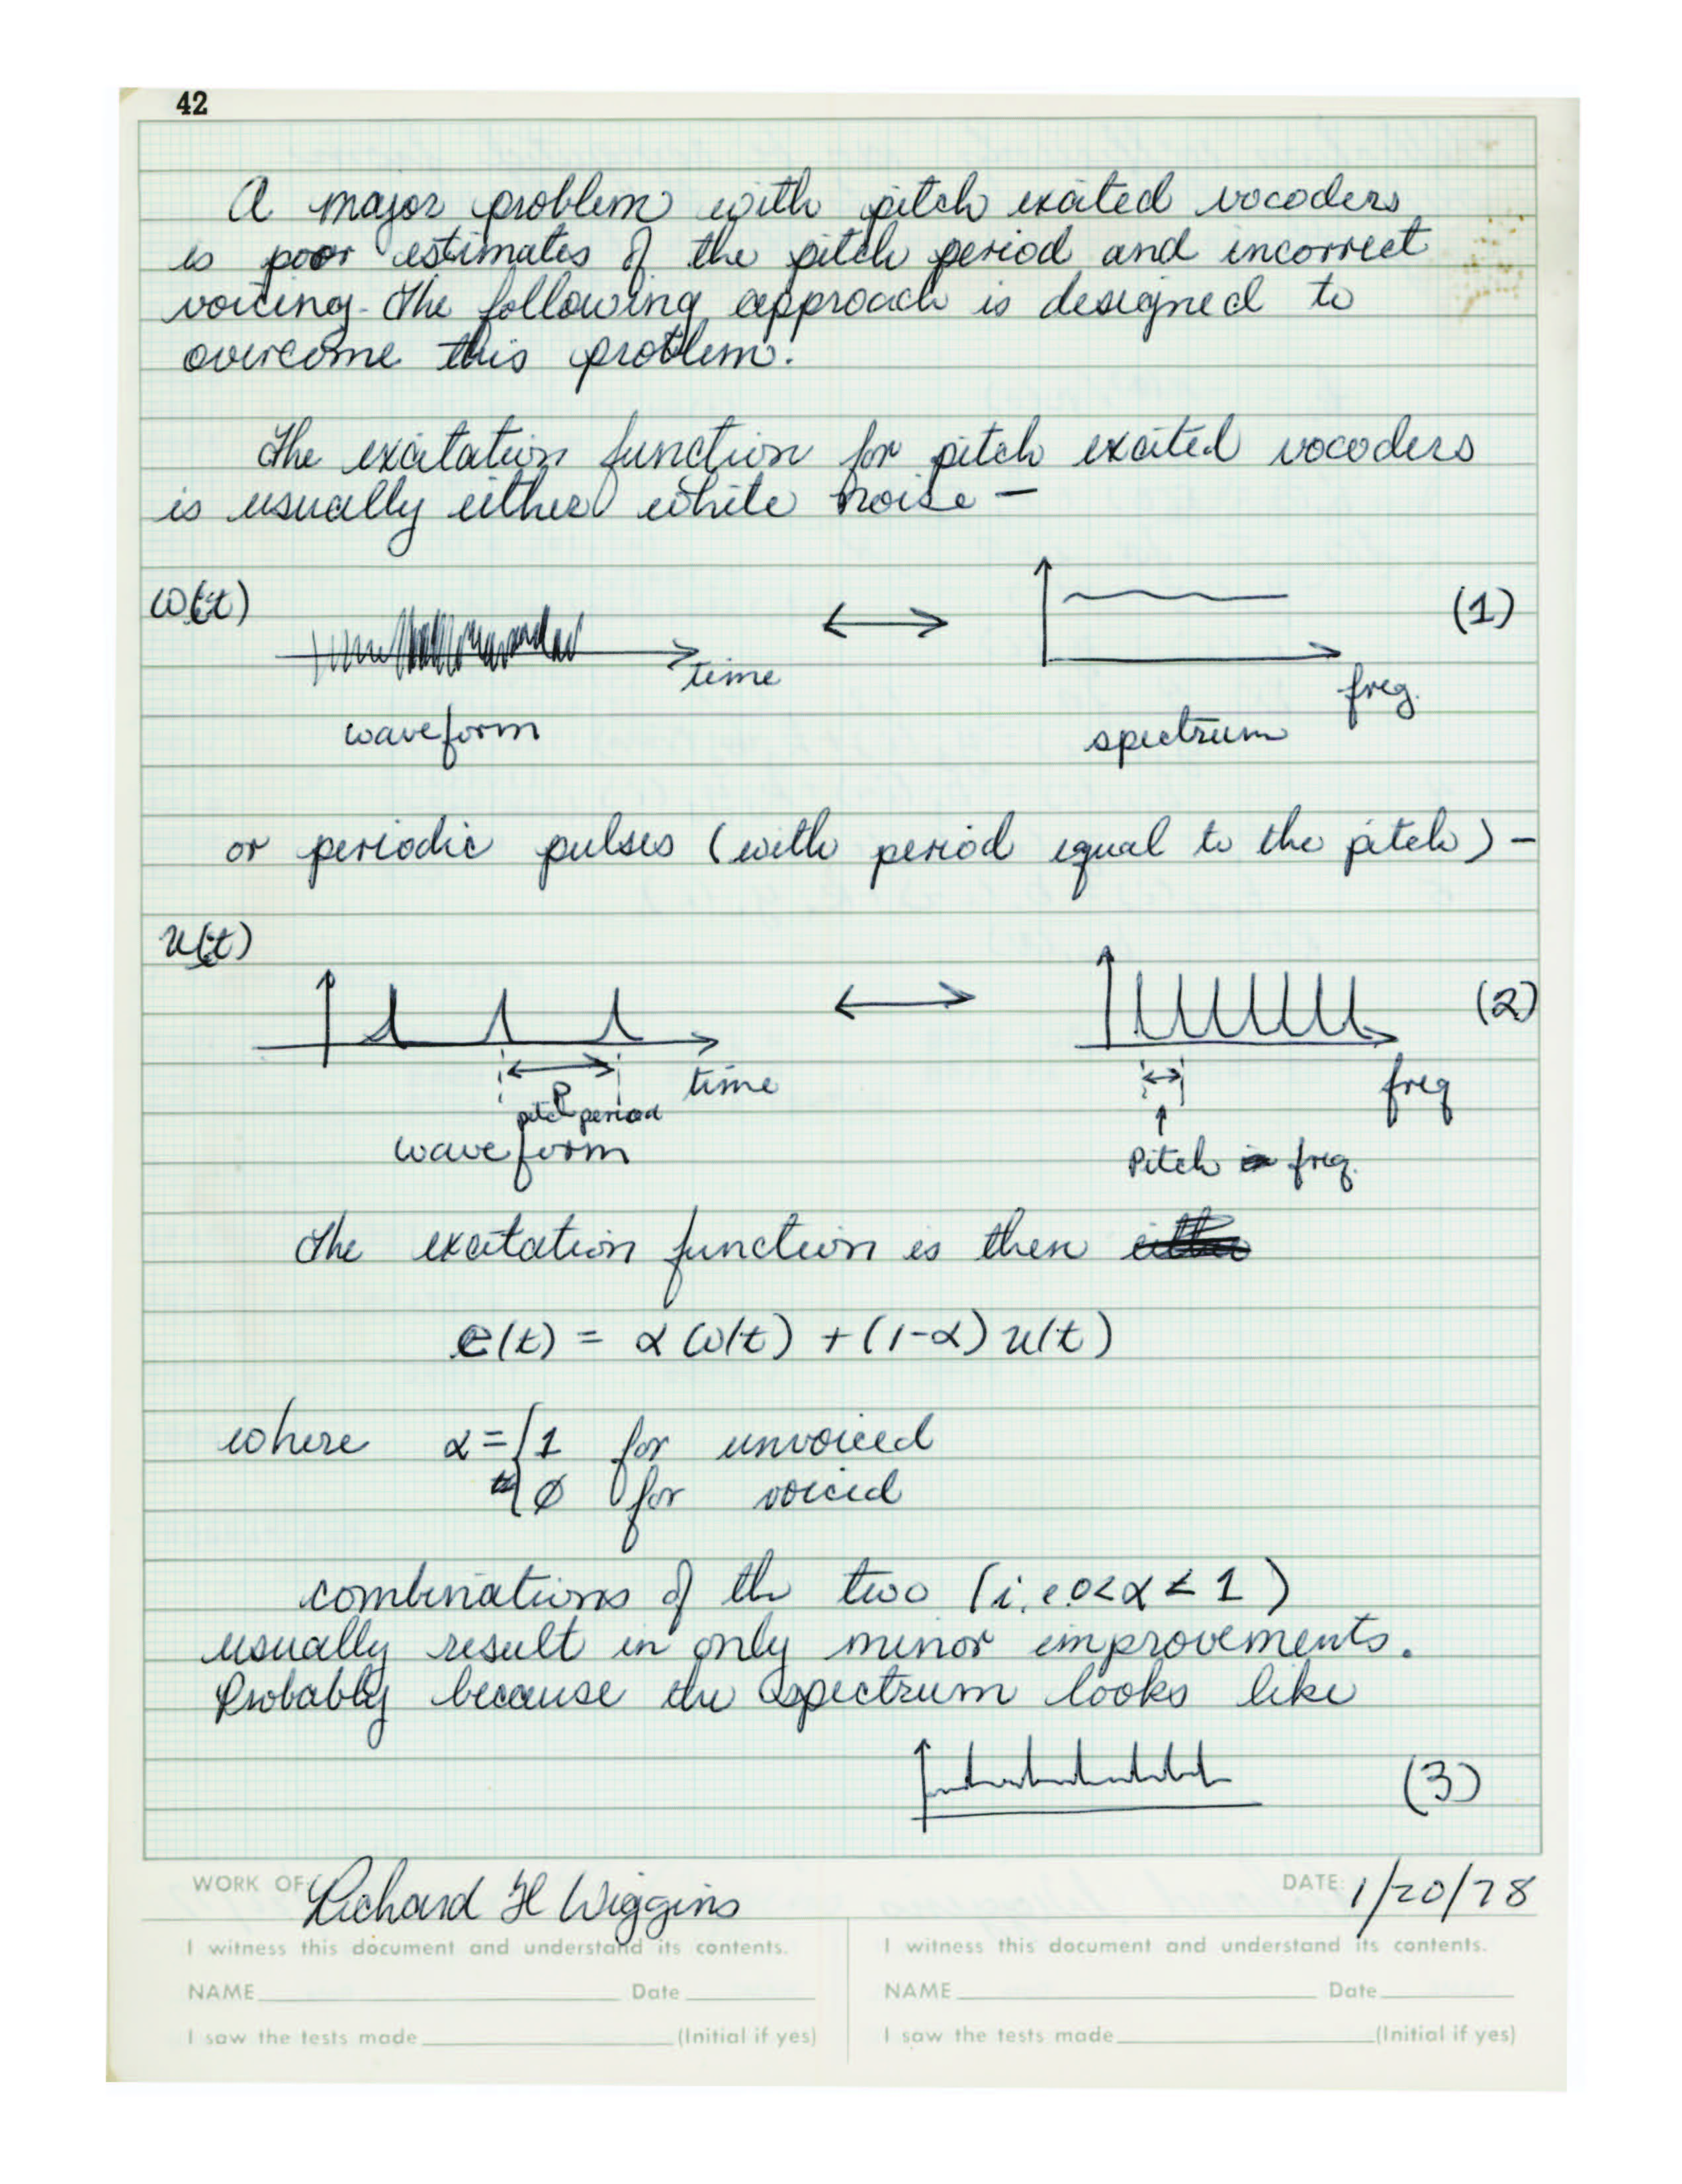 42
A major problem with pitch excited vocoders
is poor estimates of the pitch period and incorrect
voicing. The following approach is designed to
overcome this problem.
The excitation function for pitch excited vocoders
is usually either white noise —
ω(t)
time
freq.
(1)
waveform
spectrum
or periodic pulses (with period equal to the pitch) —
u(t)
(2)
time
freq
P
pitch period
waveform
Pitch freq.
The excitation function is then either
e(t) = α ω(t) + (1-α) u(t)
where α = { 1 for unvoiced
0 for voiced
combinations of the two (i.e 0<α<1)
usually result in only minor improvements.
Probably because the spectrum looks like
(3)
WORK OF: Richard H Wiggins DATE: 1/20/78
I witness this document and understand its contents. I witness this document and understand its contents.
NAME Date NAME Date
I saw the tests made (Initial if yes) I saw the tests made (Initial if yes)